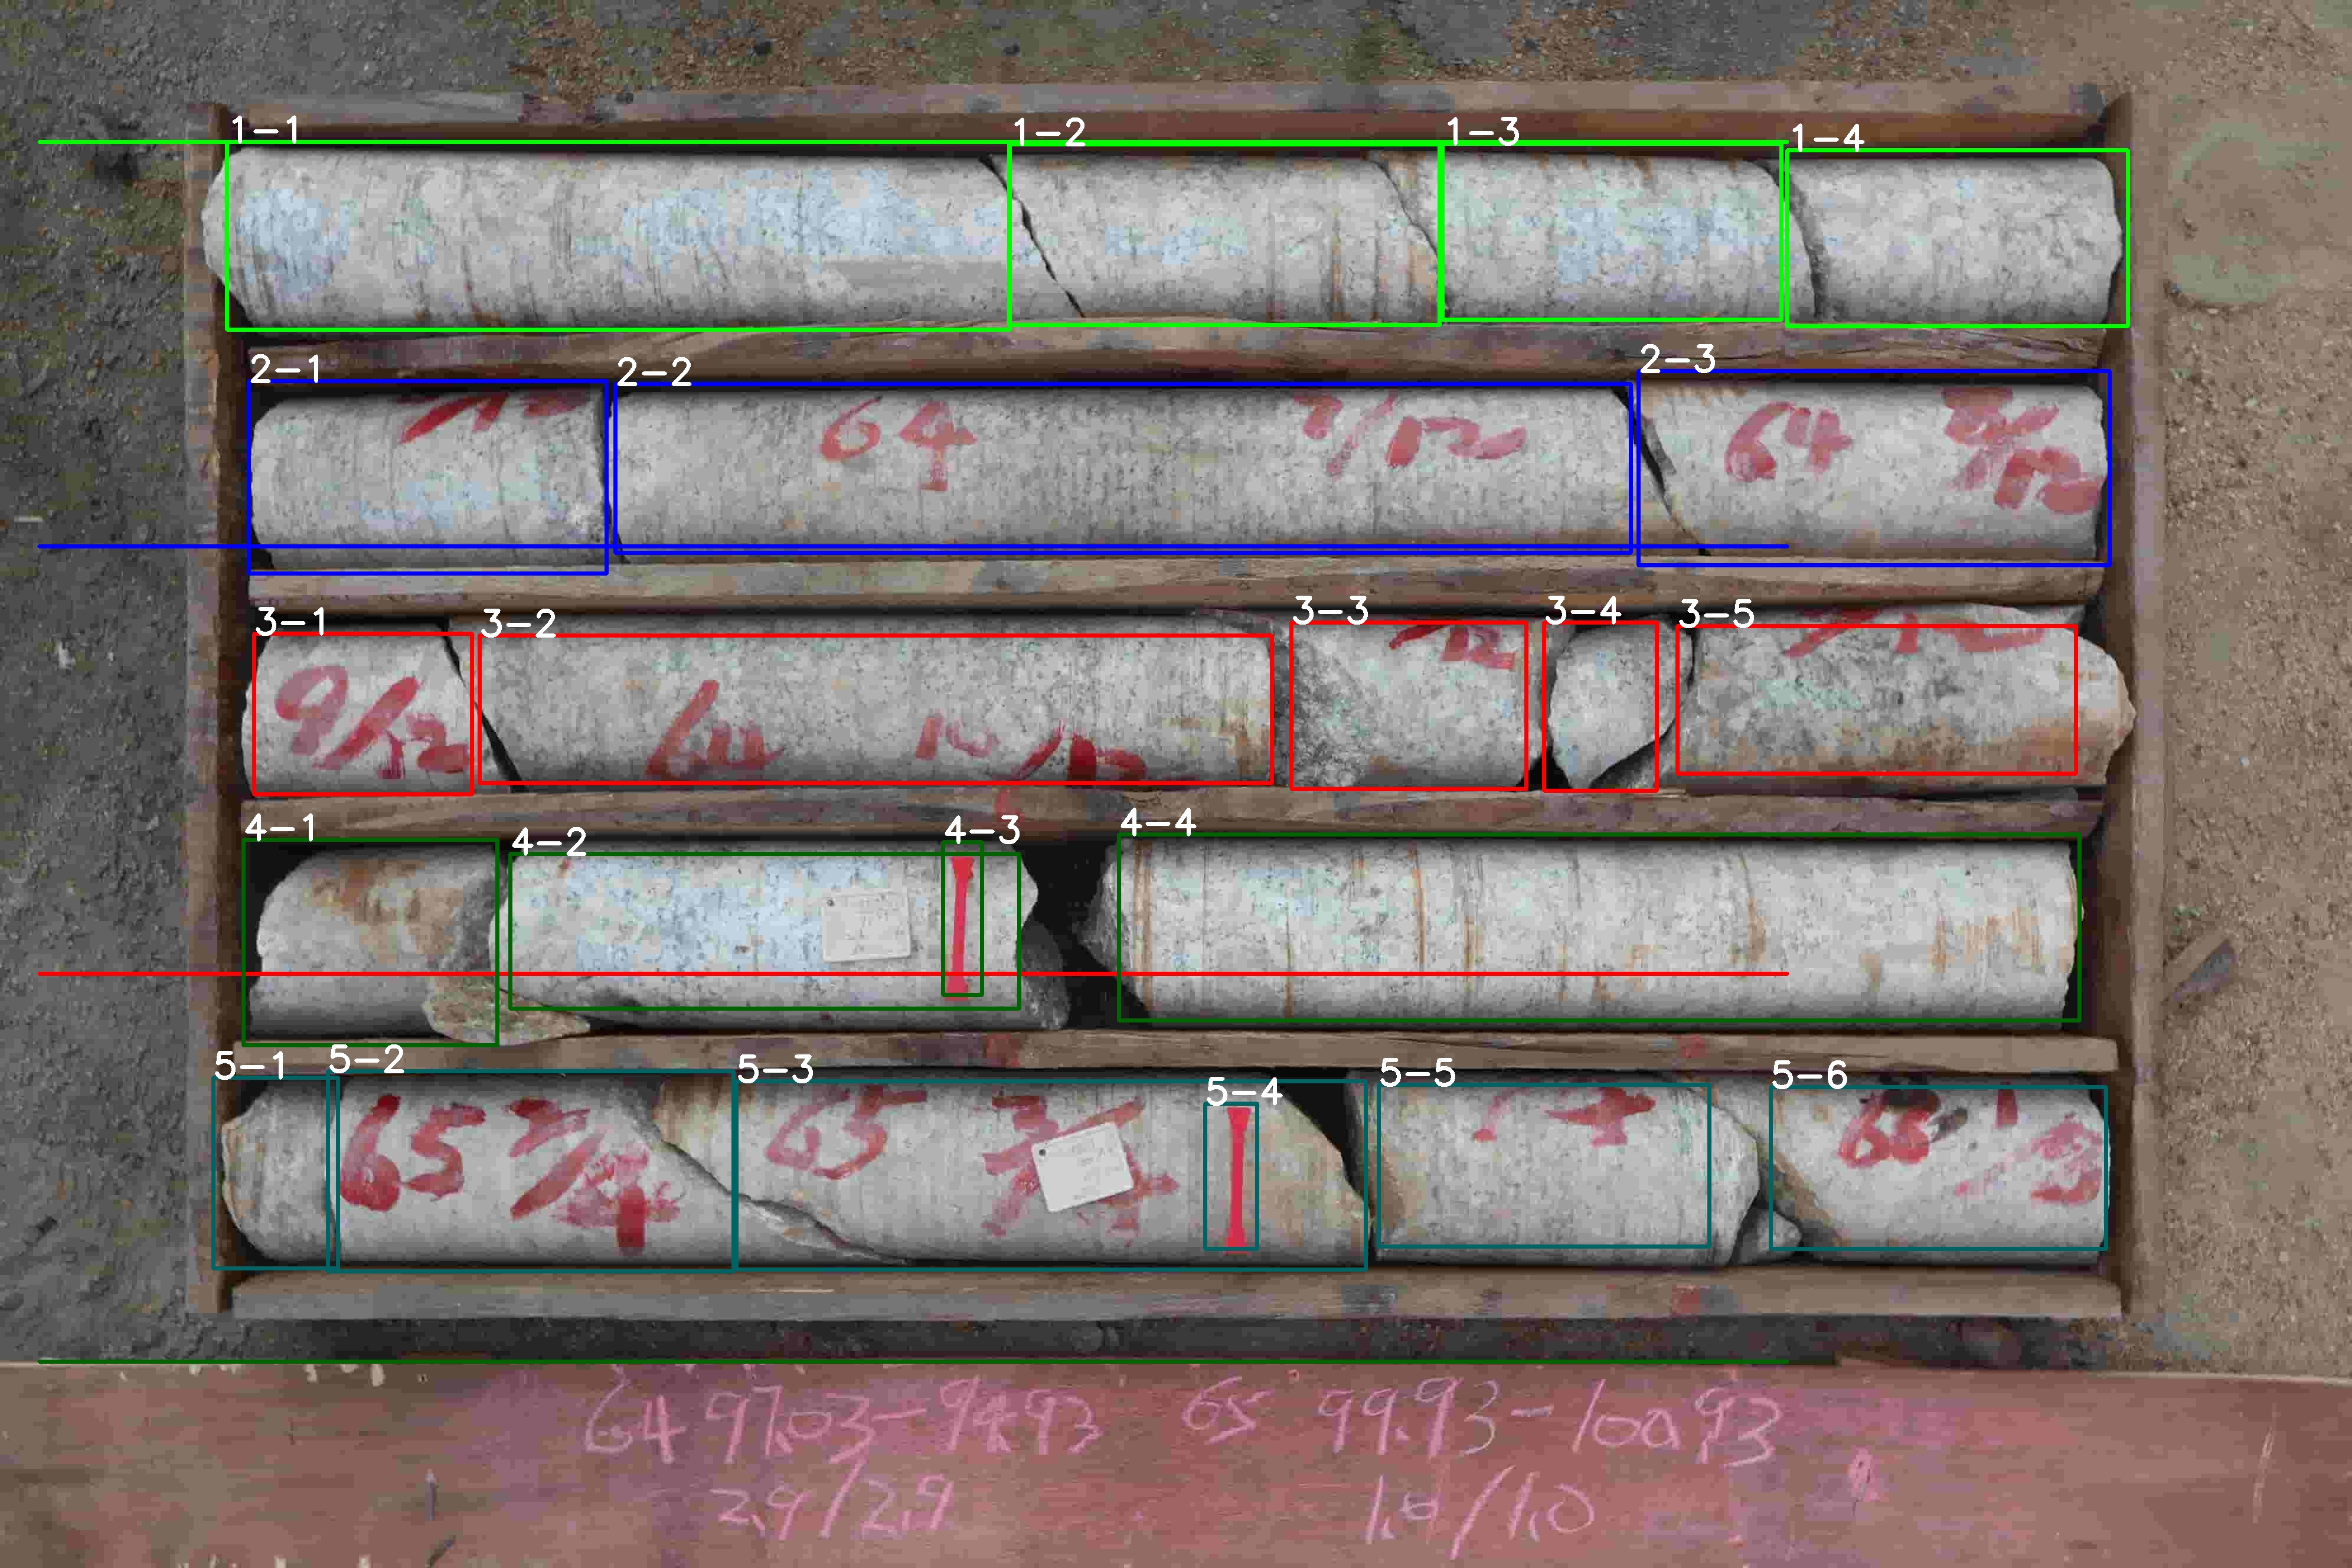 1-1 1-2 1-3 1-4
2-1 2-2 2-3
64 7/12 64 8/12
3-1 3-2 3-3 3-4 3-5
9/12 64 10/12 /12
4-1 4-2 4-3 4-4
5-1 5-2 5-3 5-4 5-5 5-6
65 2/4 65 3/4
64 97.03-99.93 65 99.93-100.93
2.9/2.9 1.0/1.0